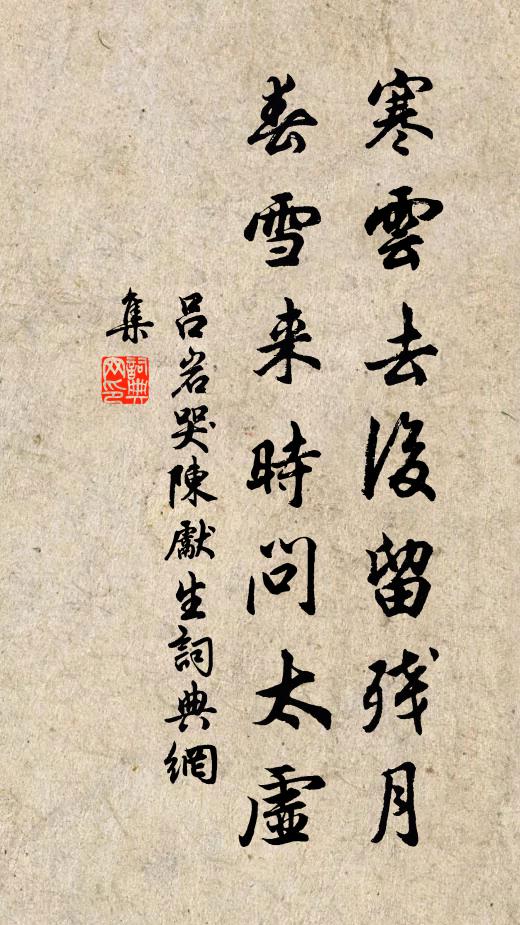 寒雲去後留残月
春雪来時問太虛
吕岩哭陳獻生詞典網
集
詞典網印